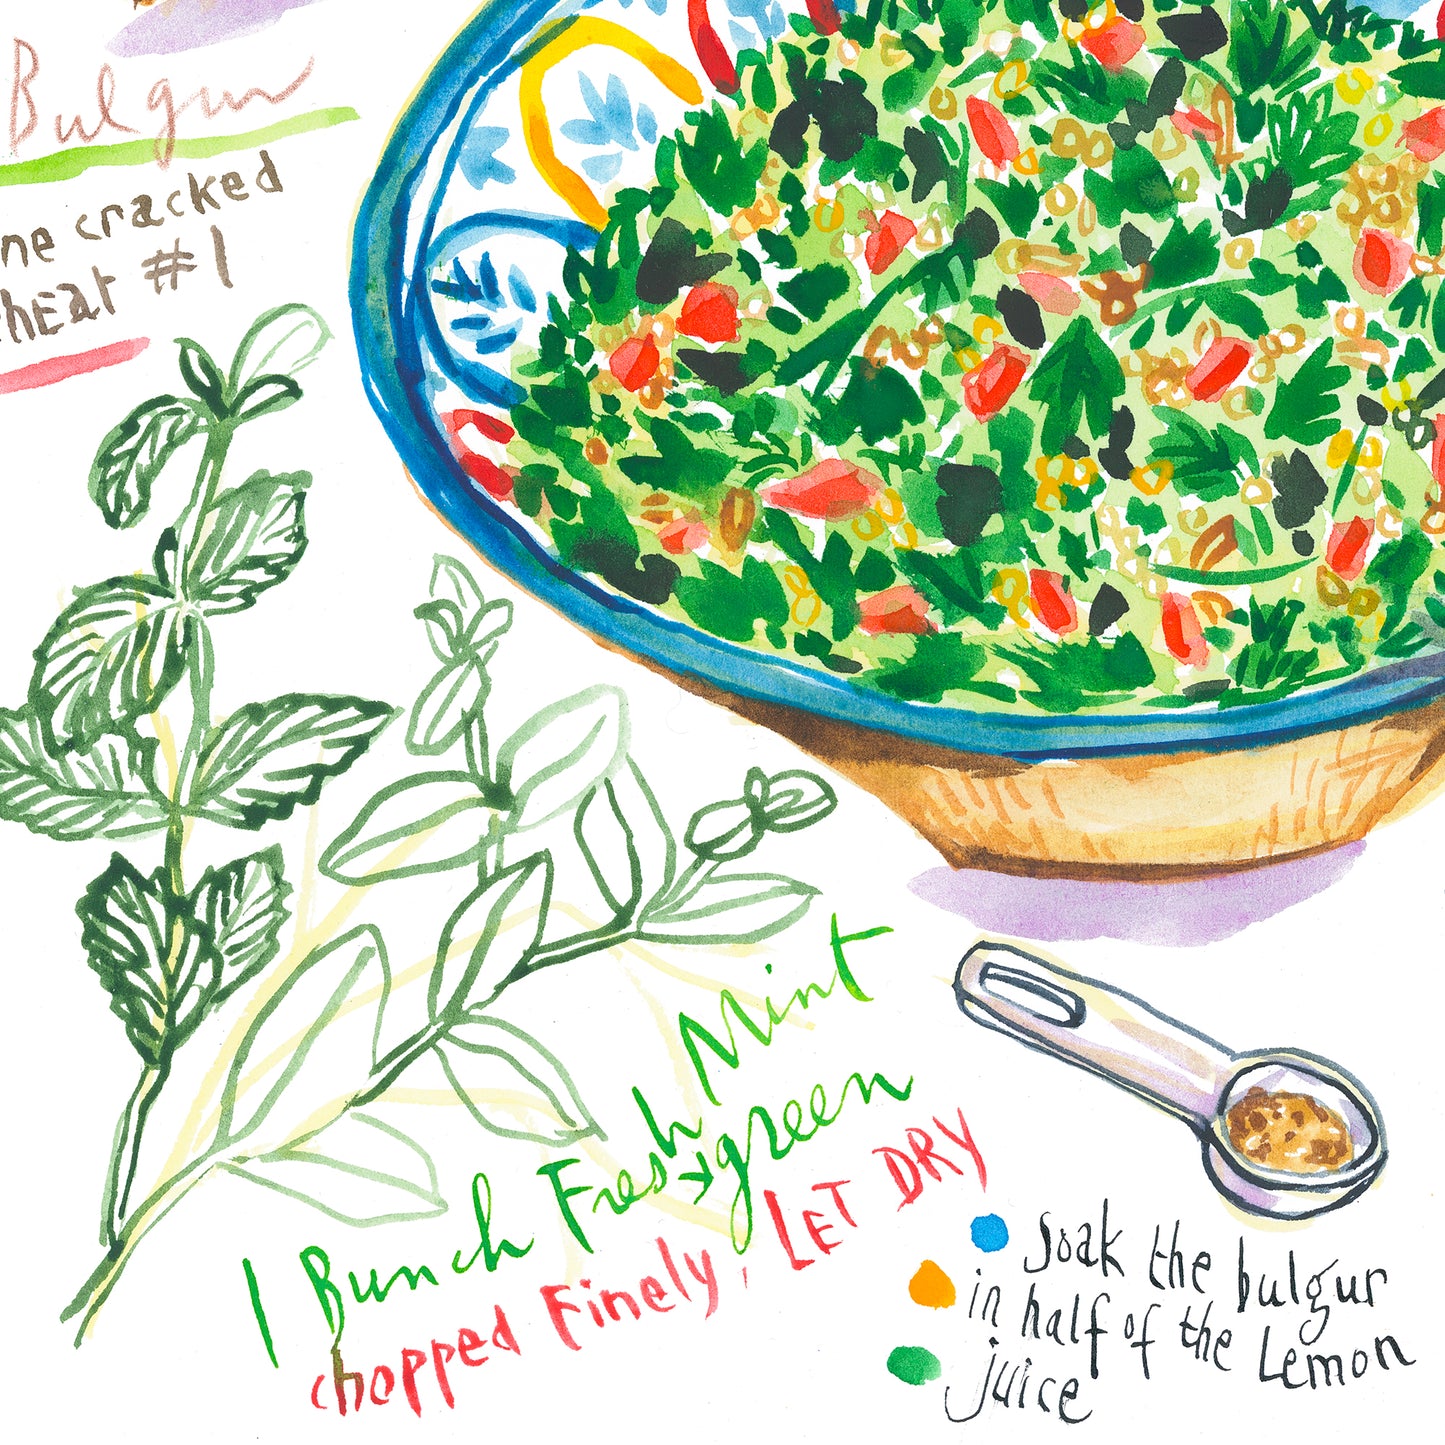 Bulgur
ne cracked
hEat #1
1 Bunch Fresh Mint
>green
chopped Finely, LET DRY
Soak the bulgur
in half of the Lemon
juice